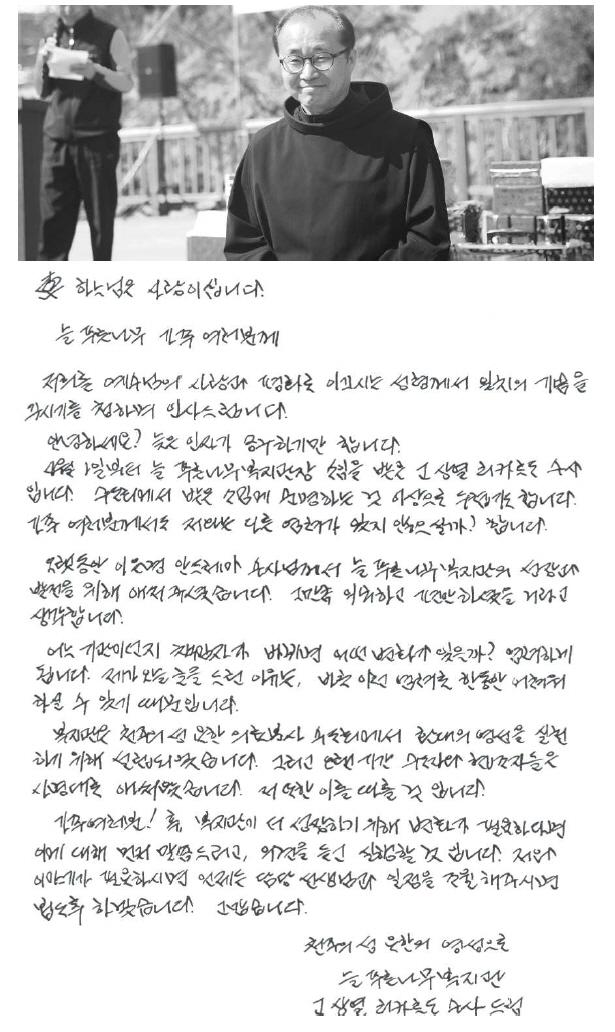 愛 하느님은 사랑이십니다.
늘 푸른나무 가족 여러분께
저희를 예수님의 사랑과 평화로 이끄시는 성령께서 일치의 기쁨을
주시기를 청하며 인사드립니다.
안녕하세요? 늦은 인사가 송구하기만 합니다.
4월 1일부터 늘 푸른나무복지관장 소임을 받은 고상열 리카르도 수사
입니다. 수도회에서 받은 소임에 순명하는 것 이상으로 두렵기도 합니다.
가족 여러분께서도 저와는 다른 염려가 있지 않으실까? 합니다.
오랫동안 이 안드레아 수사님께서 늘 푸른나무복지관의 성장과
발전을 위해 애써주셨습니다. 그만큼 의지하고 편안하셨을 거라고
생각합니다.
어느 기관이던지 책임자가 바뀌면 어떤 변화가 있을까? 염려하게
됩니다. 제가 오늘 글을 드린 이유는, 바로 이런 염려로 한동안 어려워
하실 수 있기 때문입니다.
복지관은 천주의 성 요한 의료봉사 수도회에서 환대의 영성을 실천
하기 위해 설립되었습니다. 그리고 오랜기간 수도자와 협조자들은
사명대로 애써왔습니다. 저 또한 이를 따를 것 입니다.
가족여러분! 혹, 복지관이 더 성장하기 위해 변화가 필요하다면
이에 대해 먼저 말씀드리고, 의견을 듣고 실행할 것 입니다. 저와
이야기가 필요하시면 언제든 담당 선생님과 일정을 조율해주시면
뵙도록 하겠습니다. 고맙습니다.
천주의 성 요한의 영성으로
늘 푸른나무복지관
고상열 리카르도 수사 드림